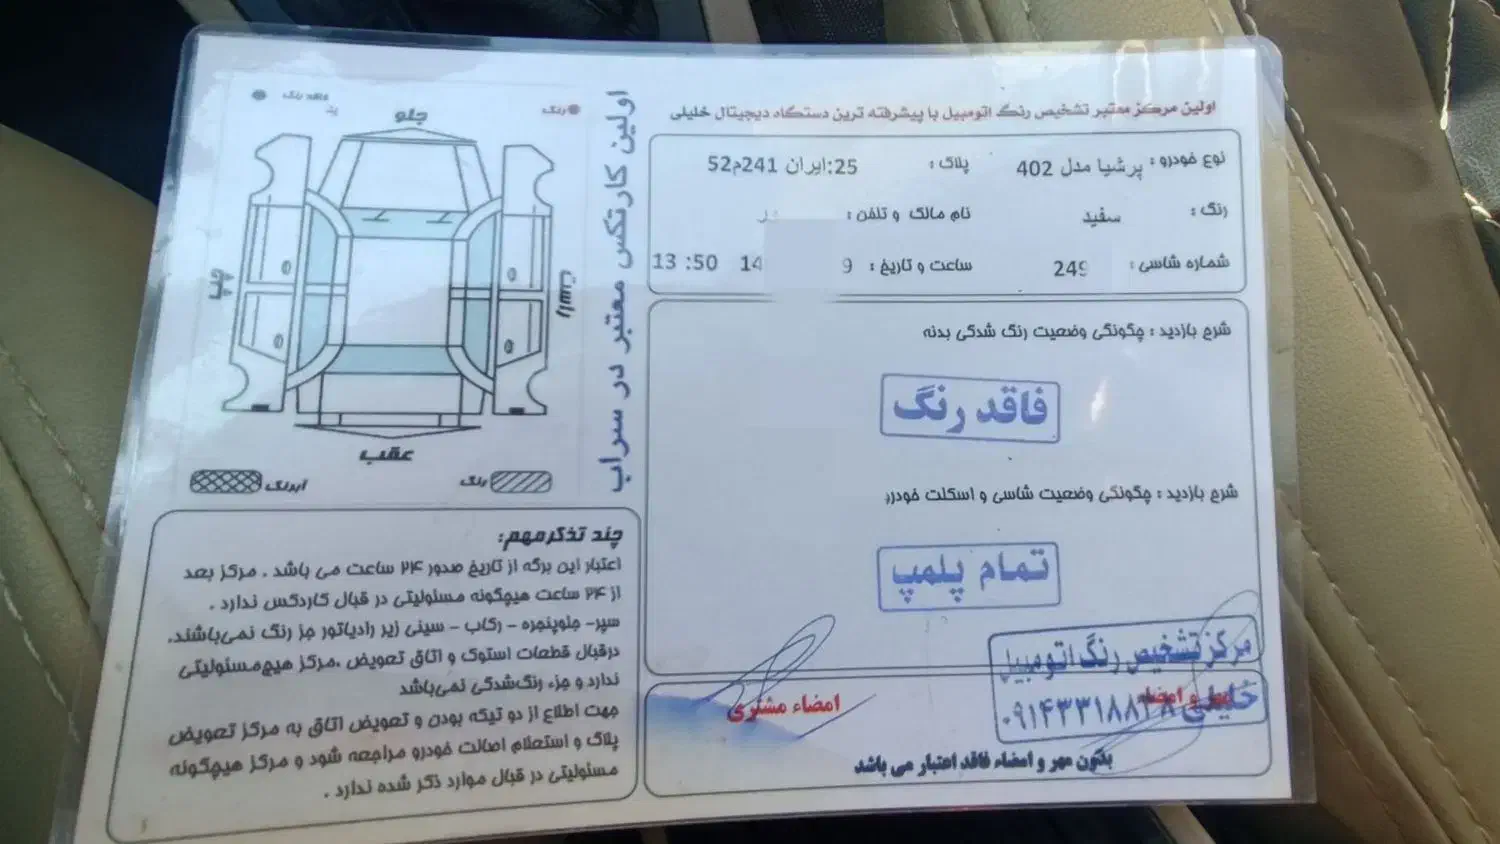 اولین مرکز معتبر تشخیص رنگ اتومبیل با پیشرفته ترین دستگاه دیجیتال خلیلی
نوع خودرو : پرشیا مدل 402
پلاک : 25:ایران 241م52
رنگ : سفید
نام مالک و تلفن :
شماره شاسی : 249
ساعت و تاریخ : 9 14 13:50
شرح بازدید : چگونگی وضعیت رنگ شدگی بدنه
فاقد رنگ
شرح بازدید : چگونگی وضعیت شاسی و اسکلت خودرو
تمام پلمپ
مرکز تشخیص رنگ اتومبیل
خلیلی
مهر و امضاء
امضاء مشتری
بدون مهر و امضاء فاقد اعتبار می باشد
اولین کارتکس معتبر در سراب
رنگ
فاقد رنگ
جلو
چپ
راست
عقب
رنگ
آبرنگ
چند تذکر مهم:
اعتبار این برگه از تاریخ صدور ۲۴ ساعت می باشد . مرکز بعد
از ۲۴ ساعت هیچگونه مسئولیتی در قبال کاردکس ندارد .
سپر- جلوپنجره - رکاب - سینی زیر رادیاتور جز رنگ نمی‌باشند.
درقبال قطعات استوک و اتاق تعویض ،مرکز هیچ‌مسئولیتی
ندارد و جزء رنگ‌شدگی نمی‌باشد
جهت اطلاع از دو تیکه بودن و تعویض اتاق به مرکز تعویض
پلاک و استعلام اصالت خودرو مراجعه شود و مرکز هیچگونه
مسئولیتی در قبال موارد ذکر شده ندارد .